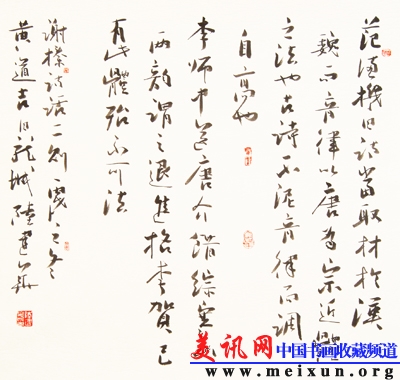 范德機曰詩當取材於漢
魏而音律以唐為宗近體
之法也古詩不泥音律而調
自高也
李師中送唐介錯綜寒山
兩韻謂之退進格李賀已
有此體殆不可法
謝榛詩話二則
黄道吉日龍城陸建華
美讯网 中国书画收藏频道
www.meixun.org